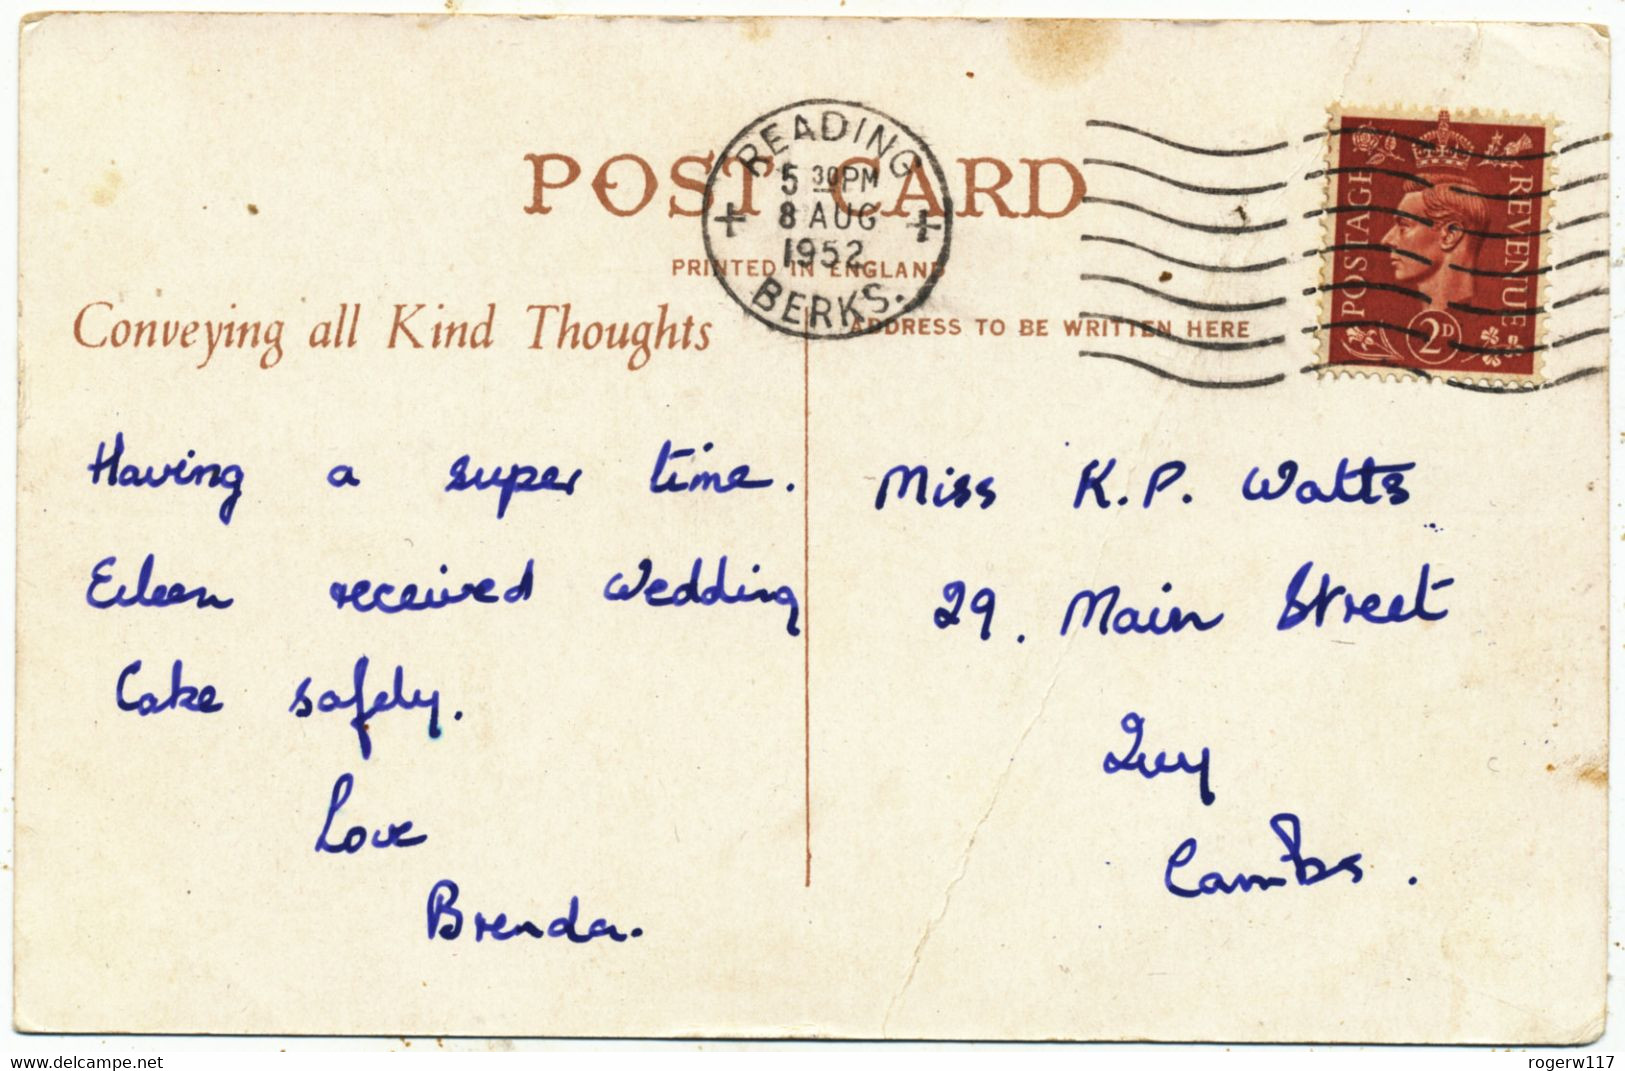 POST CARD
READING
5 30PM
8 AUG
1952
BERKS.
PRINTED IN ENGLAND
Conveying all Kind Thoughts
ADDRESS TO BE WRITTEN HERE
POSTAGE
REVENUE
2D
Having a super time.
Eileen received wedding
Cake safely.
Love
Brenda.
Miss K.P. Watts
29. Main Street
Quy
Cambs.
www.delcampe.net
rogerw117